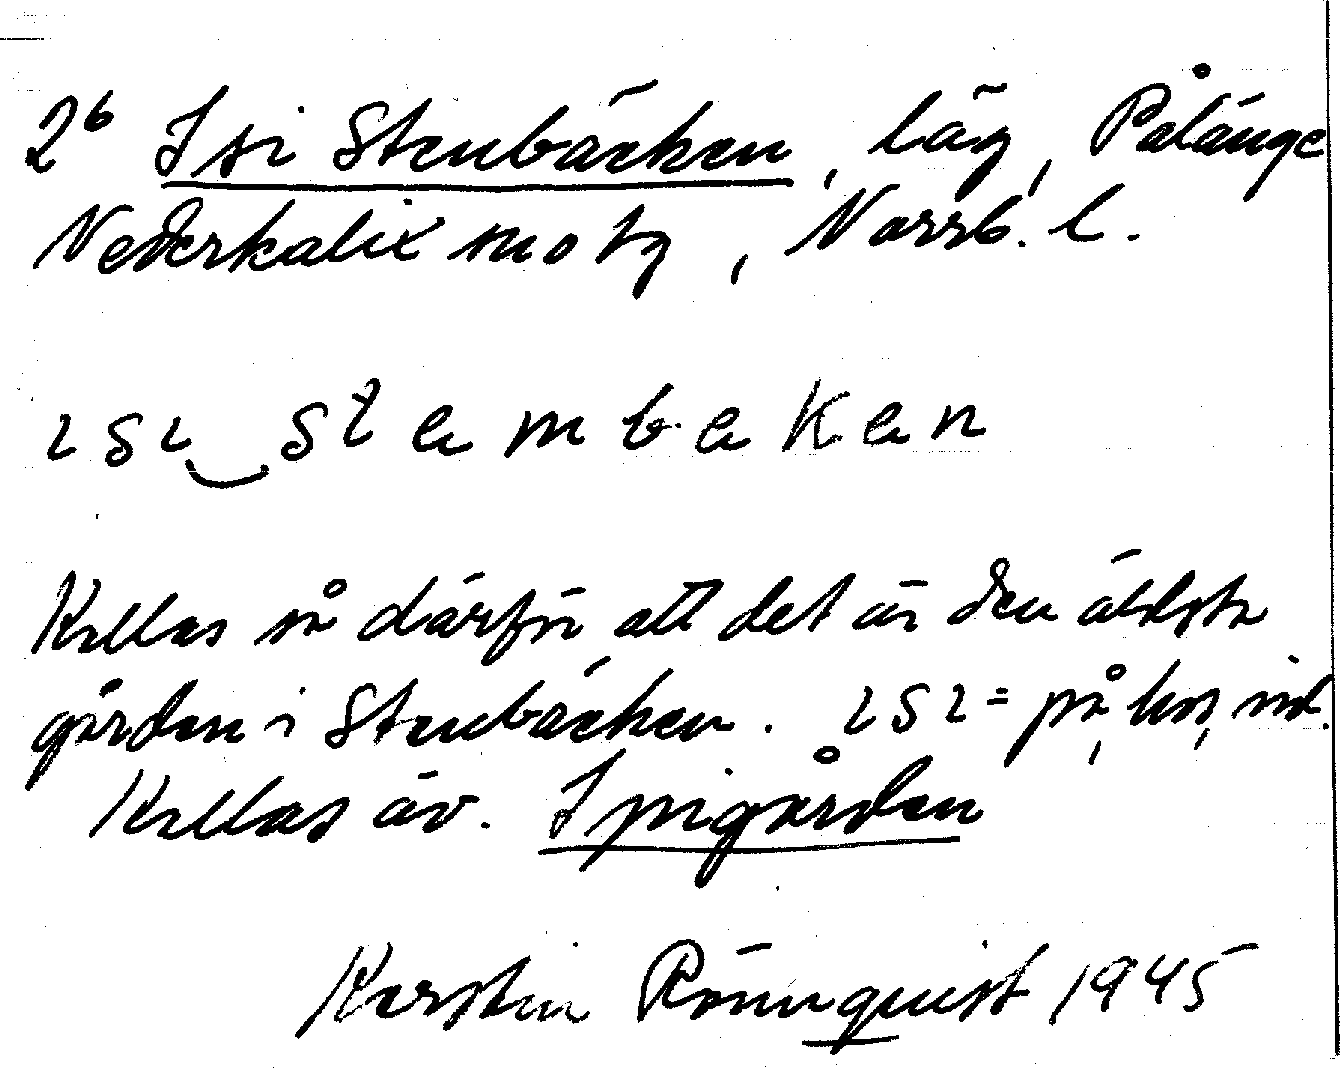 2b Isi Stenbäcken, läg, Pålänge
Nederkalix sn otg, Norrb. l.
ısı stembeken
Kallas så därför att det är den äldsta
gården i Stenbäcken. ısı = på, hos, vid.
Kallas äv. Ipigården
Kerstin Rönnquist 1945